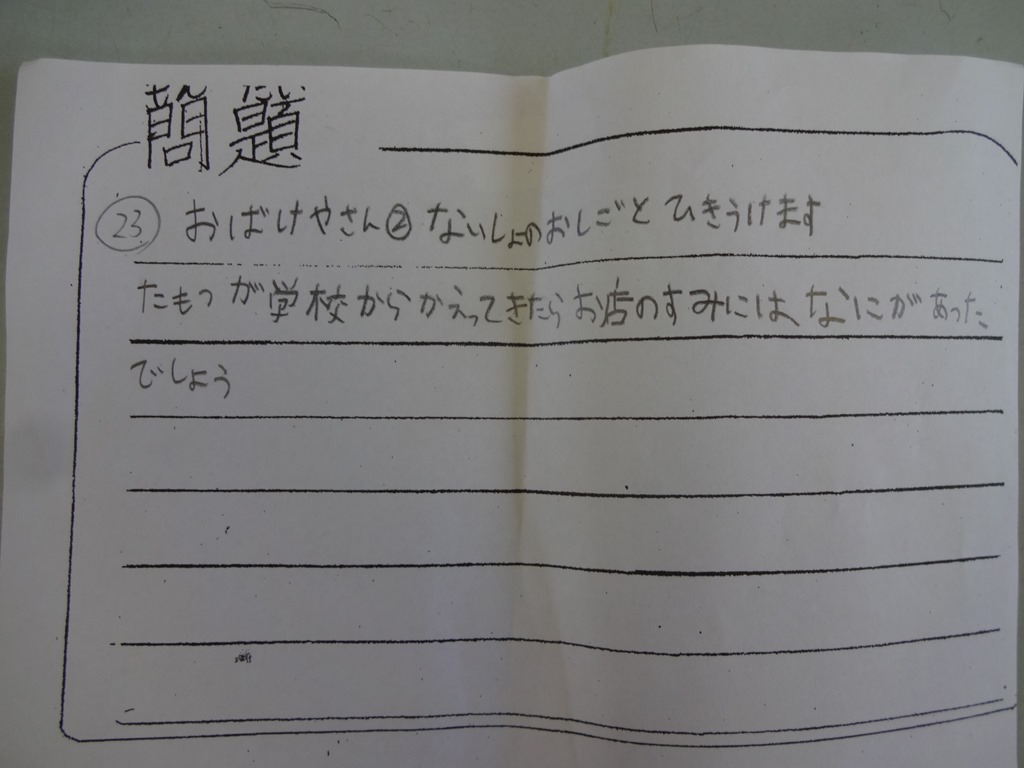 問題
㉓ おばけやさん② ないしょのおしごと ひきうけます
たもつが学校からかえってきたらお店のすみには、なにがあった
でしょう